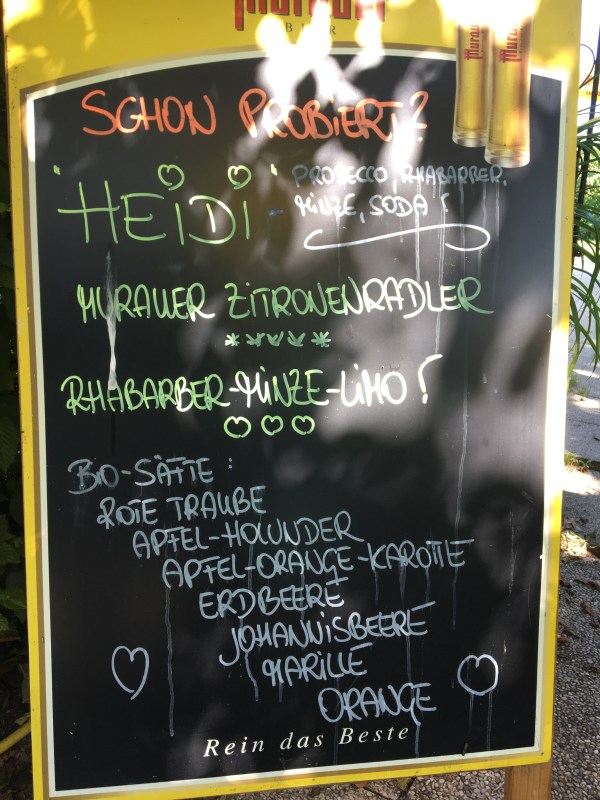 Murauer
BIER
SCHON PROBIERT?
"HEIDI" - PROSECCO, RHABARBER,
MINZE, SODA!
MURAUER ZITRONENRADLER
RHABARBER-MINZE-LIMO!
BIO-SÄFTE:
ROTE TRAUBE
APFEL-HOLUNDER
APFEL-ORANGE-KAROTTE
ERDBEERE
JOHANNISBEERE
MARILLE
ORANGE
Rein das Beste